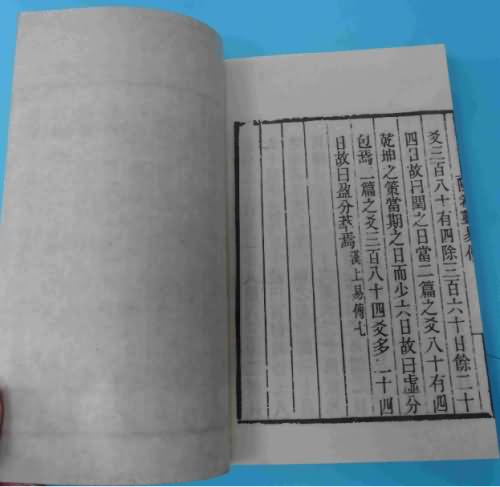 爻三百八十有四除三百六十日餘二十
四日故曰閏之日當二篇之爻八十有四
乾坤之策當期之日而少六日故曰虛分
包焉二篇之爻三百八十四爻多二十四
日故曰盈分萃焉漢上易傳七